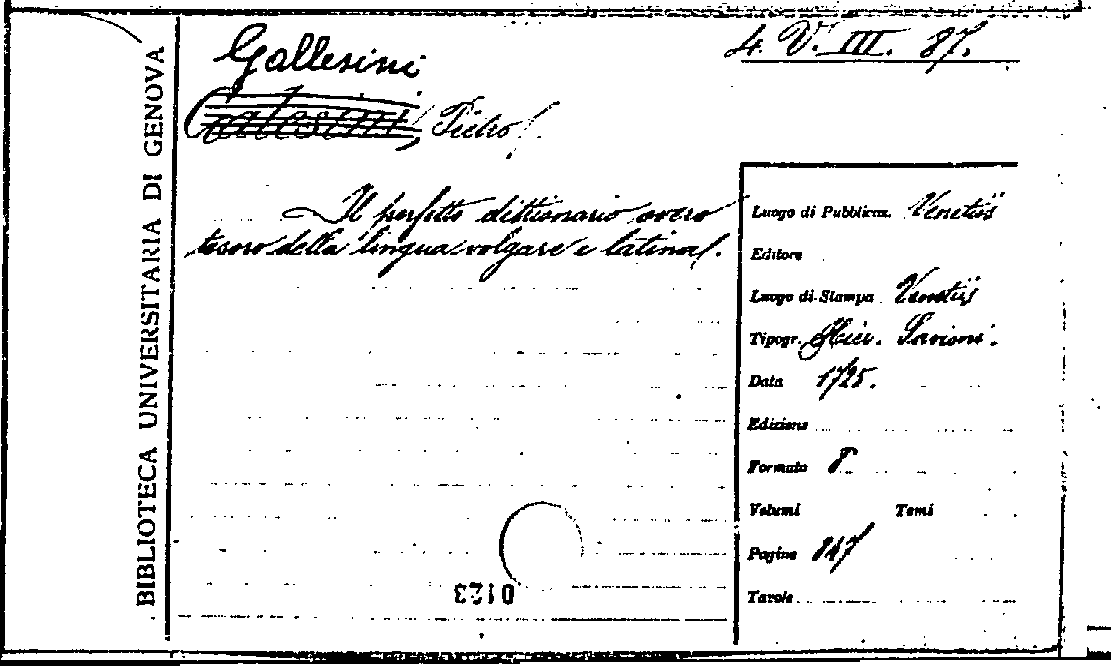 BIBLIOTECA UNIVERSITARIA DI GENOVA
4. V. III. 87.
Gallesini
Galesini, Pietro.
Il perfetto dittionario overo
tesoro della lingua volgare e latina.
Luogo di Pubblicaz. Venetiis
Editore
Luogo di Stampa Venetiis
Tipogr. Hier. Savioni.
Data 1725.
Edizione
Formato 8º
Volumi Tomi
Pagine 847
Tavole
0123